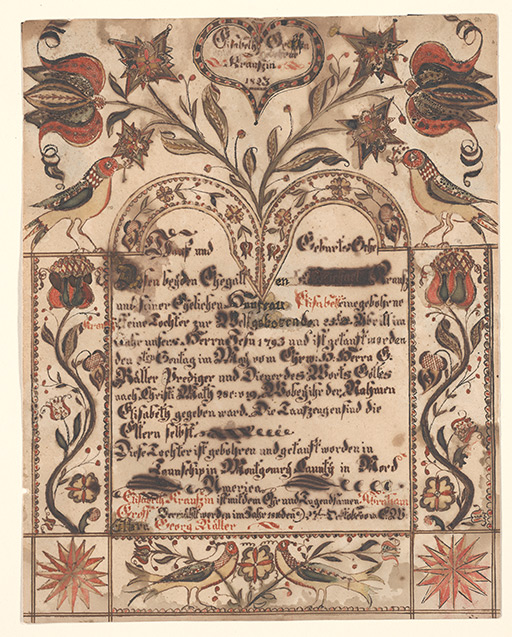 Elisabeth
Krautzin
1823
Tauf und Geburts
Diesen beyden Ehegatt en Krautz
und seiner Ehelichen Hausfrau Elisabeth ingebohrne
Krautz eine Tochter zur Welt gebohren den 25ten Abrill im
Jahr unsers Herrn Jesu 1793 und ist getauft worden
den 5ten Sontag im May vom Ehrw. H. Herrn G.
Räller Prediger und Diener des Worts Gottes
nach Christi Math 28: v: 19. Wobey ihr der Nahmen
Elisabeth gegeben ward. Die Taufzeugen sind die
Eltern selbst.
Diese Tochter ist gebohren und getauft worden in
Taunschip in Montgomry Caunty in Nord
America
Elisabeth Krautzin ist mit dem Ehr und Tugendsamen Abraham
Groff Verehligt worden im Jahr
Georg Räller